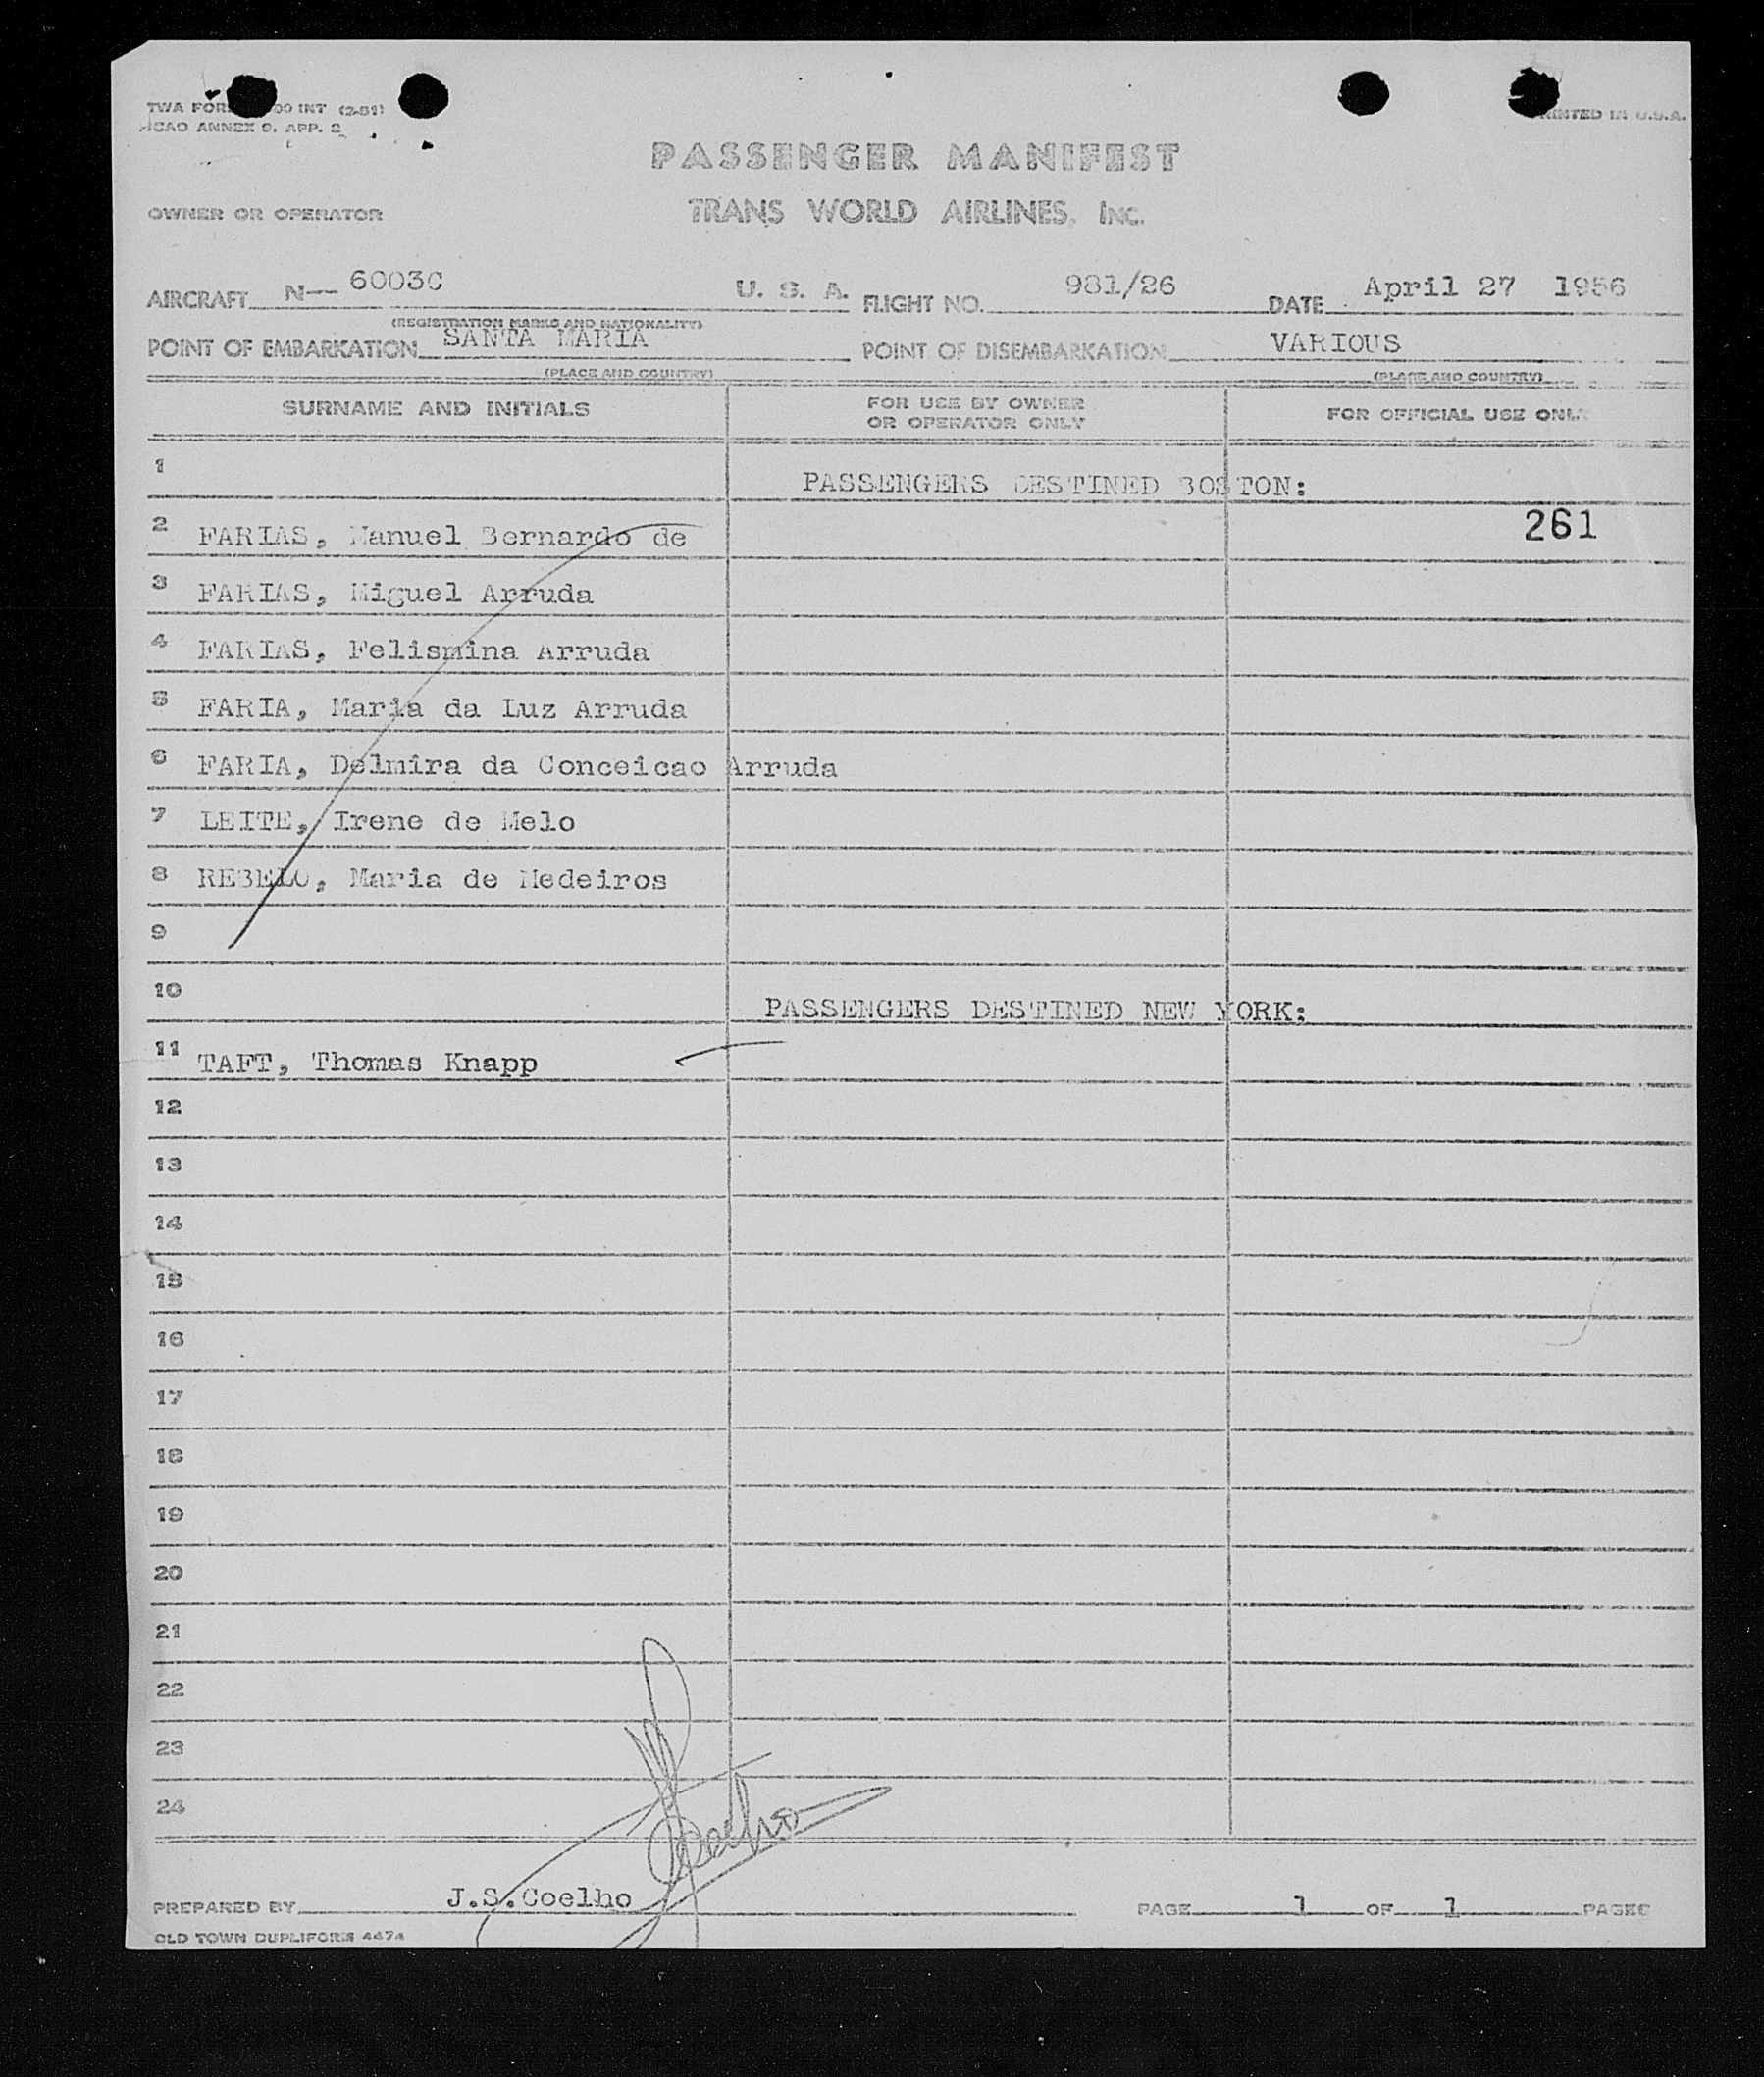 TWA FOR 00 INT (2-51)
ICAO ANNEX 9, APP. 2
PRINTED IN U.S.A.
PASSENGER MANIFEST
OWNER OR OPERATOR TRANS WORLD AIRLINES, INC.
AIRCRAFT N— 6003C U. S. A. FLIGHT NO. 981/26 DATE April 27 1956
(REGISTRATION MARKS AND NATIONALITY)
POINT OF EMBARKATION SANTA MARIA POINT OF DISEMBARKATION VARIOUS
(PLACE AND COUNTRY) (PLACE AND COUNTRY)
SURNAME AND INITIALS FOR USE BY OWNER OR OPERATOR ONLY FOR OFFICIAL USE ONLY
1 PASSENGERS DESTINED BOSTON:
2 FARIAS, Manuel Bernardo de 261
3 FARIAS, Miguel Arruda
4 FARIAS, Felismina Arruda
5 FARIA, Maria da Luz Arruda
6 FARIA, Delmira da Conceicao Arruda
7 LEITE, Irene de Melo
8 REBELO, Maria de Medeiros
9
10 PASSENGERS DESTINED NEW YORK:
11 TAFT, Thomas Knapp
12
13
14
15
16
17
18
19
20
21
22
23
24
Coelho
PREPARED BY J.S.Coelho PAGE 1 OF 1 PAGES
OLD TOWN DUPLIFORM 4474